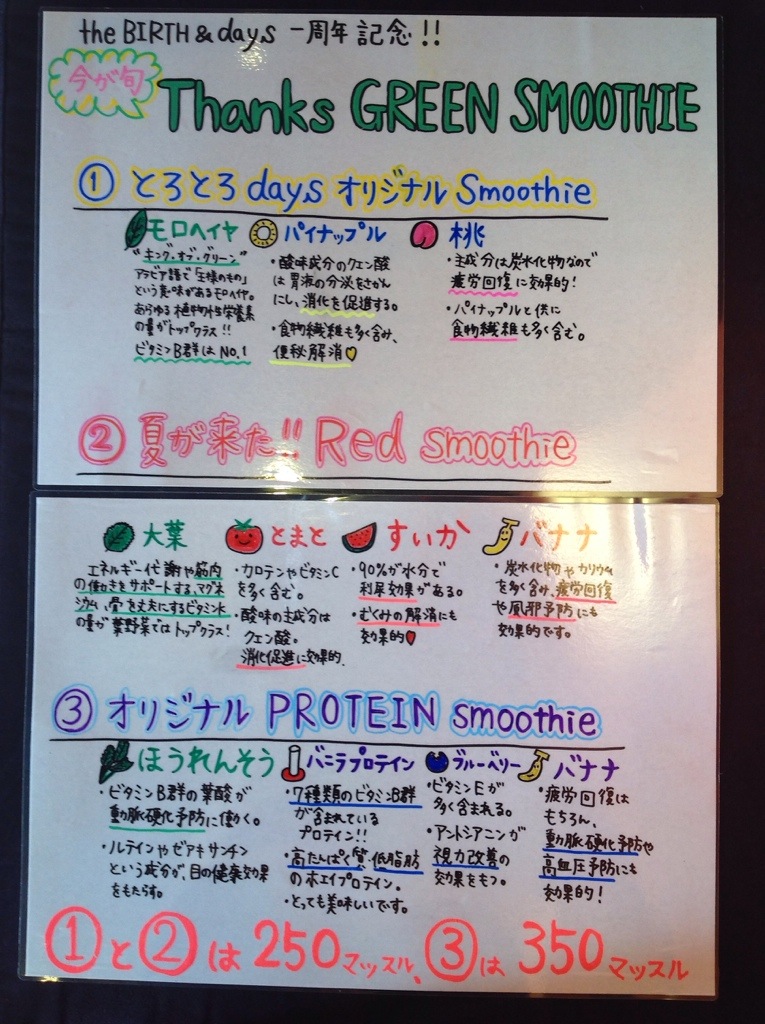 the BIRTH & days 一周年記念!!
今が旬
Thanks GREEN SMOOTHIE
① とろとろdays オリジナル Smoothie
モロヘイヤ
"キング・オブ・グリーン"
アラビア語で「王様のもの」
という意味があるモロヘイヤ。
あらゆる植物性栄養素
の量がトップクラス!!
ビタミンB群はNo.1
パイナップル
・酸味成分のクエン酸
は胃液の分泌をさかん
にし、消化を促進する。
・食物繊維も多く含み、
便秘解消
桃
・主成分は炭水化物なので
疲労回復に効果的!
・パイナップルと供に
食物繊維も多く含む。
② 夏が来た!! Red smoothie
大葉
エネルギー代謝や筋肉
の働きをサポートする、マグネ
シウム、骨を丈夫にするビタミンK
の量が葉野菜ではトップクラス!
とまと
・カロテンやビタミンC
を多く含む。
・酸味の主成分は
クエン酸。
消化促進に効果的.
すいか
・90%が水分で
利尿効果がある。
・むくみの解消にも
効果的
バナナ
・炭水化物やカリウム
を多く含み、疲労回復
や風邪予防にも
効果的です。
③ オリジナル PROTEIN smoothie
ほうれんそう
・ビタミンB群の葉酸が
動脈硬化予防に働く。
・ルテインやゼアキサンチン
という成分が、目の健康効果
をもたらす。
バニラプロテイン
・7種類のビタミンB群
が含まれている
プロテイン!!
・高たんぱく質、低脂肪
のホエイプロテイン。
・とっても美味しいです。
ブルーベリー
・ビタミンEが
多く含まれる。
・アントシアニンが
視力改善の
効果をもつ。
バナナ
・疲労回復は
もちろん、
動脈硬化予防や
高血圧予防にも
効果的!
①と②は250マッスル、③は350マッスル